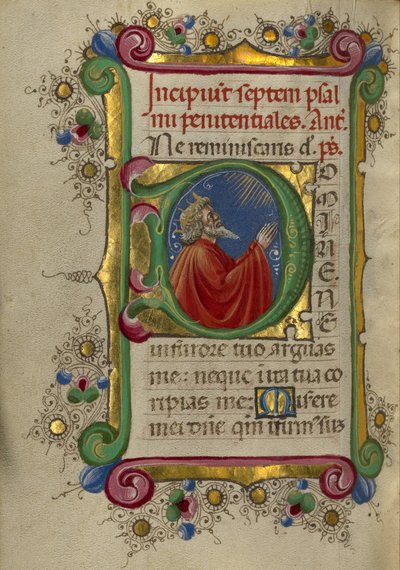 Incipiūt septem psal
mi penitentiales. Ant̃.
Ne reminiscaris d̃. ps̃.
DOMINE. NE
in furore tuo arguas
me: neque in ira tua co
ripias me: Misere
mei dñe qm̃ infirmus